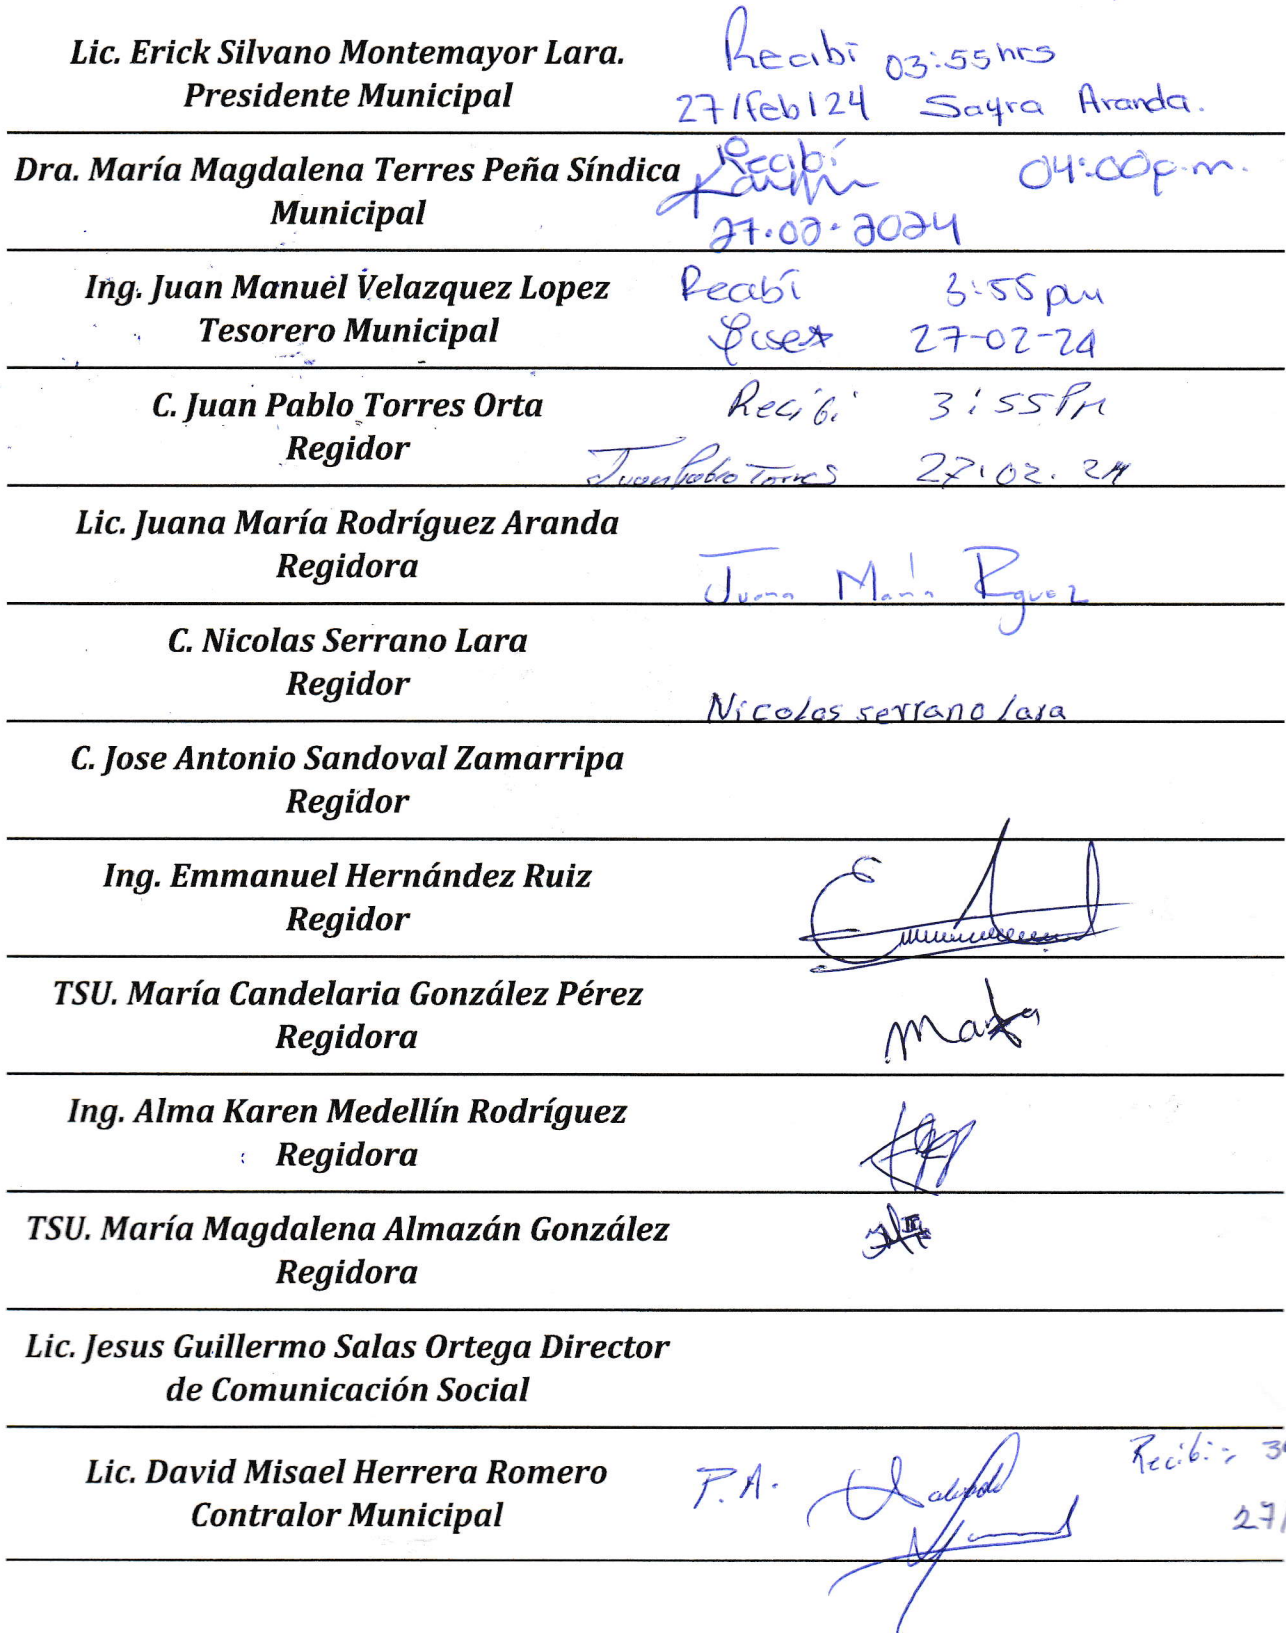 Lic. Erick Silvano Montemayor Lara.
Presidente Municipal
Recibi 03:55hrs
27/feb/24 Sayra Aranda.
Dra. María Magdalena Terres Peña Síndica
Municipal
Recibí 04:00p.m.
27.02.2024
Ing. Juan Manuel Velazquez Lopez
Tesorero Municipal
Recibí 3:55pm
27-02-24
C. Juan Pablo Torres Orta
Regidor
Recibi 3:55PM
Juan Pablo Torres 27.02.24
Lic. Juana María Rodríguez Aranda
Regidora
Juana María Rguez
C. Nicolas Serrano Lara
Regidor
Nicolas serrano lara
C. Jose Antonio Sandoval Zamarripa
Regidor
Ing. Emmanuel Hernández Ruiz
Regidor
TSU. María Candelaria González Pérez
Regidora
Ing. Alma Karen Medellín Rodríguez
Regidora
TSU. María Magdalena Almazán González
Regidora
Lic. Jesus Guillermo Salas Ortega Director
de Comunicación Social
Lic. David Misael Herrera Romero
Contralor Municipal
P.A.
Recibi: 3
27/